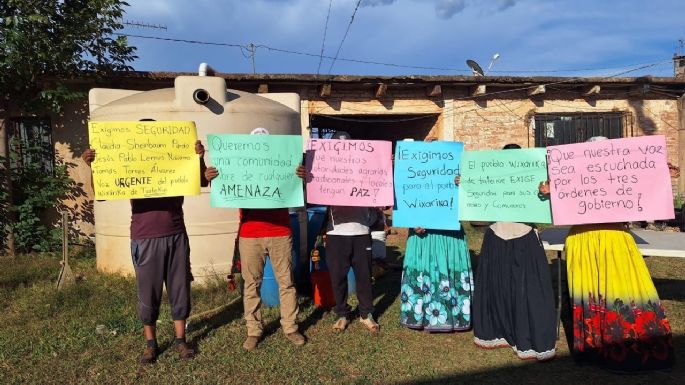 Exigimos SEGURIDAD
Claudia Sheinbaum Pardo
Jesús Pablo Lemus Navarro
Torres Álvarez
Voz URGENTE del pueblo
Wixárika de
Queremos
una comunidad
libre de cualquier
AMENAZA
¡EXIGIMOS
que nuestras
autoridades agrarias
tradicionales y locales
tengan PAZ!
¡EXIGIMOS
Seguridad
para el pueblo
Wixárika!
El pueblo Wixárika
de EXIGE
Seguridad para sus
y Comuneros
Que nuestra VOZ
sea escuchada
Por los tres
órdenes de
gobierno!